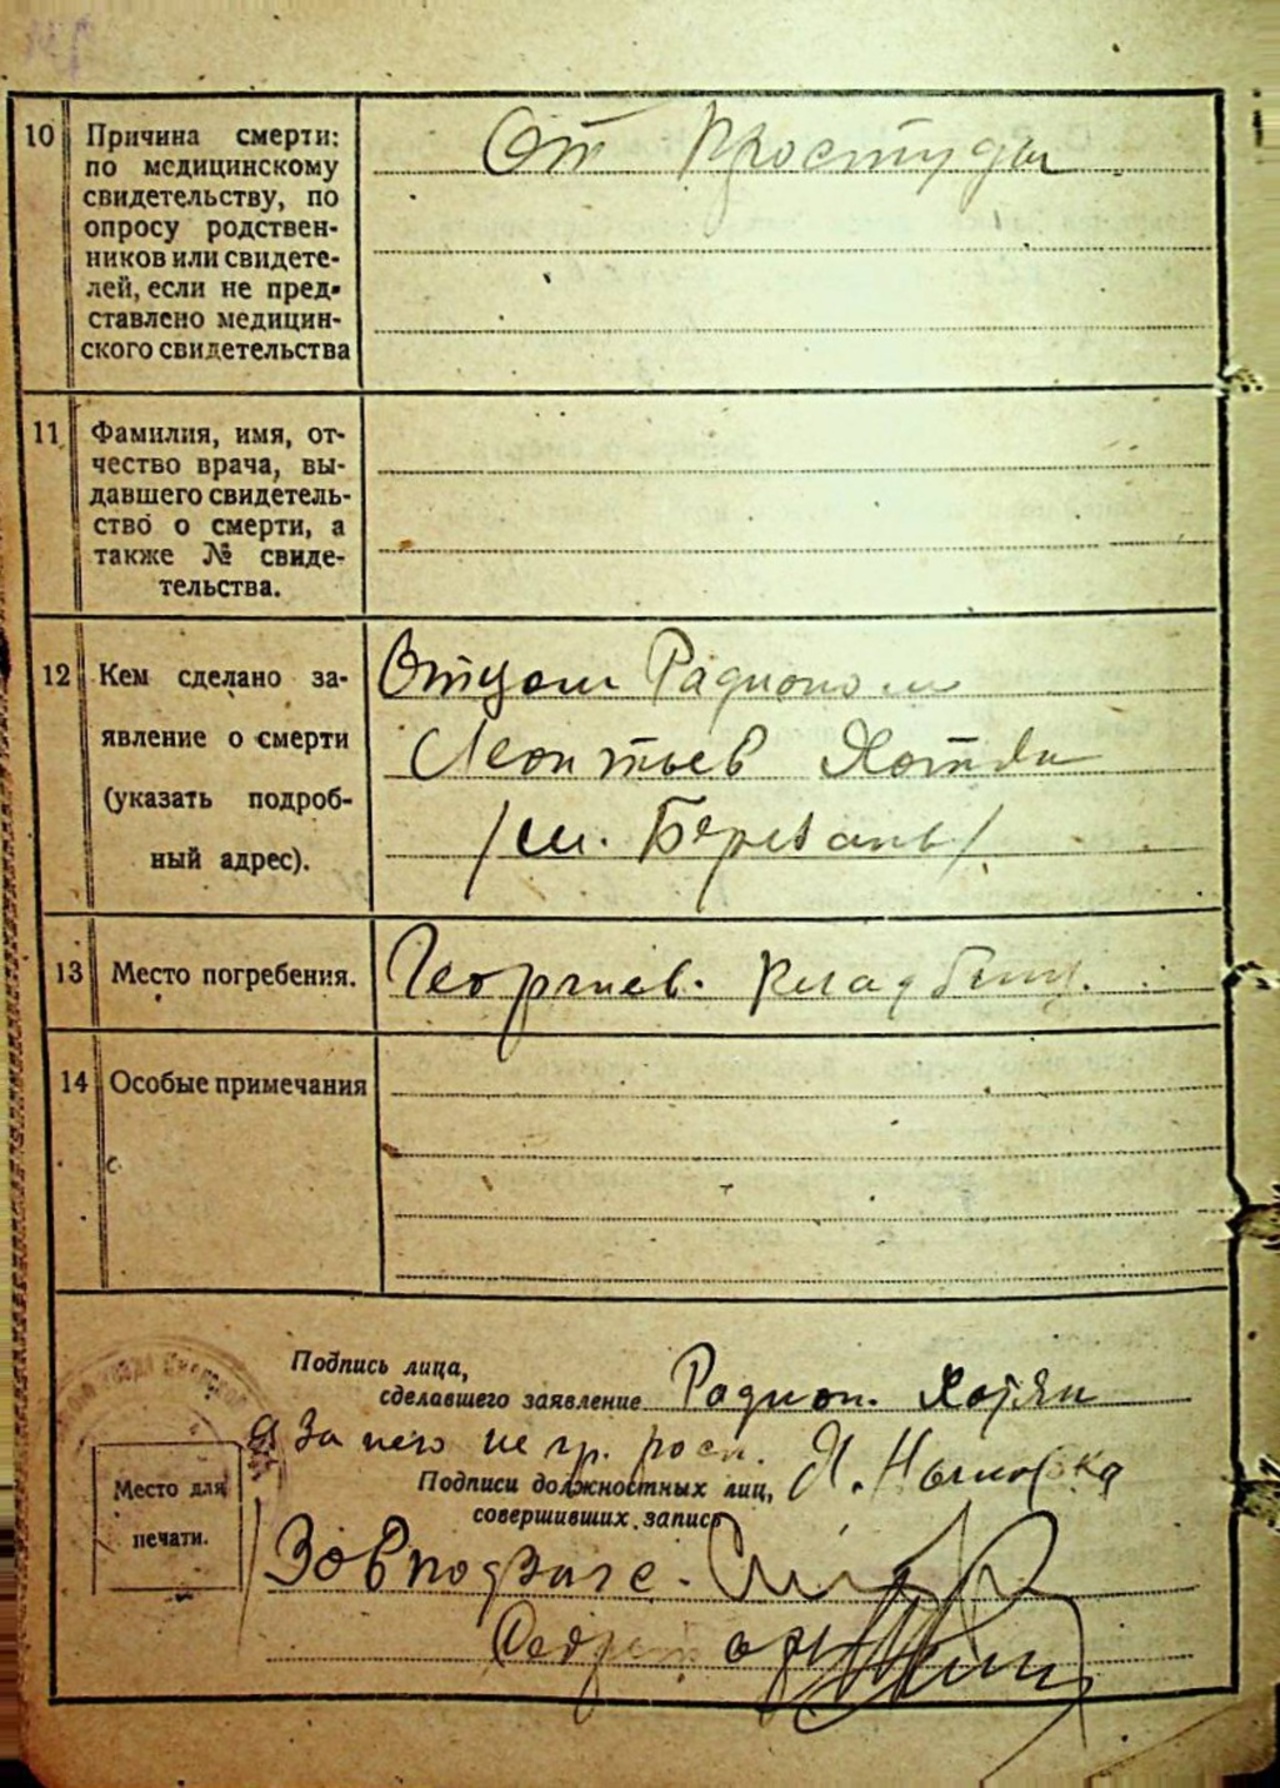 10 Причина смерти:
по медицинскому
свидетельству, по
опросу родствен-
ников или свидете-
лей, если не пред-
ставлено медицин-
ского свидетельства
От простуды
11 Фамилия, имя, от-
чество врача, вы-
давшего свидетель-
ство о смерти, а
также № свиде-
тельства.
12 Кем сделано за-
явление о смерти
(указать подроб-
ный адрес).
Отцом Радионом
Леонтьев Хотян
/м. Березань/
13 Место погребения.
Георгиев. кладбищ.
14 Особые примечания
Подпись лица,
сделавшего заявление Радион. Хотян
За него не гр. росп.
Подписи должностных лиц,
совершивших запись
Место для
печати.
Зовподзагс.